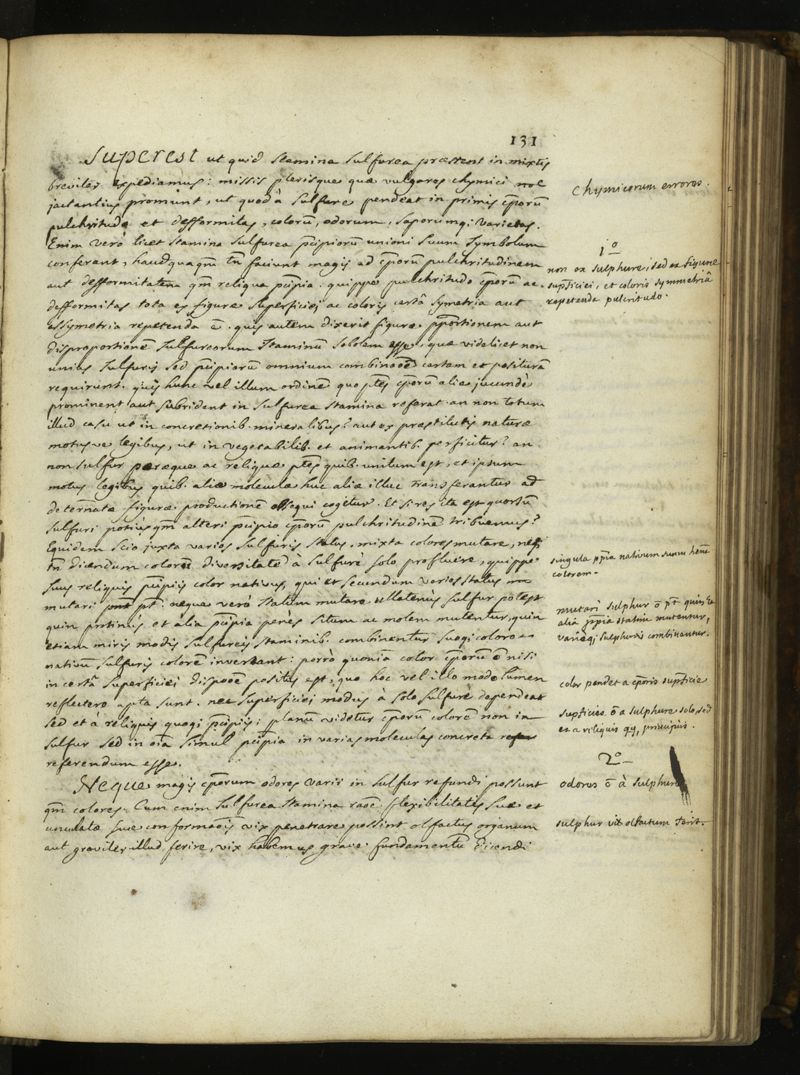 131
Superest ut quid stamina sulfurea præstent in mixtis
breviter expediamus: missis plerisque quæ vulgares chymici
jactantius promunt, ut quod à sulfure pendeat in primis cporū
pulchritudo et defformitas, colorū, odorum, saporumq; varietas.
Enim verò licet stamina sulfurea pcipiorū unioni suum symbolum
conferant, haudquaquam tn faciunt magis ad cporū pulchritudinem
aut defformitatem qm reliqua pcipia. quippe pulchritudo cporū ac
defformitas tota ex figuræ superficiei ac coloris certâ symetria aut
assymetria repetenda ē. quis autem dixerit figuræ pportionem aut
disproportionē sulfureorum staminū sobolem esse, quæ videlicet non
unius sulfuris sed pcipiorū omnium combinaōē certam et posituram
requirunt. quis hunc vel illum ordinē quo ptes cporū aliæ jucundè
prominent aut subrident in sulfurea stamina referat an non totum
illud casu ut in concretionib. mineralibus? aut ex præstitutis naturæ
motusve legibus, ut in vegetabilib. et animantib. perficitur? an
non sulfur peræque ac reliquæ ptes quib. unitum est, et ipsum
motus legibus quib. aliæ moleculæ huc aliæ illuc transferantur ad
determinatæ figuræ productionē obsequi cogetur. Et si res ita est quorsū
sulfuri potiusqm alteri pcipio cporū pulchritudinē tribuemus?
Equidem scio juxta varios sulfuris status, mixta colores mutare, neq;
tn dicendum colorū diversitatē à sulfure solo profluere, quippe
suus reliquis pcipiis color nativus, qui et secundum varios status
mutari pt: neque verò statum mutare ullatenùs sulfur potest
quin protinus et alia pcipia penès situm ac molem mutentur, quin
etiam miris modis sulfureis staminib. combinentur suoq; colore
nativum sulfuris colorē invertant: porrò quoniā color cporū ē nisi
in certâ superficiei dispoōē positus est, quo hoc vel illo modo lumen
reflectere apta sunt. nec superficiei modus à solo sulfure dependeat
sed et a reliquis quoq; pcipiis; planū videtur cporū colorē non in
sulfur sed in oīa simul pcipia in varias moleculas concreta
referendum esse.
Neque magis cporum odores varii in sulfur refundi possunt
qm colores. Cum enim sulfurea stamina raōē flexibilitatis suæ et
uncinatæ suæ conformaōis vix penetrare possint olfactus organum
aut graviter illud ferire, vix habemus grave fundamentū dicendi
Chymicorum errores.
1º
non ex sulphure, sed ex figurâ
supficiei, et coloris symmetriâ
repetenda pulcritudo.
singula ppia nativum suum habēt
colorem.
mutari sulphur ō pt quin et
alia ppia statum mutentur,
variéq; sulphuris combinantur.
color pendet a cporis supficie
supficies ō a sulphure solo, sed
et a reliquis qq, principiis.
2º
odores ō à sulphure
sulphur vix olfactum ferit.